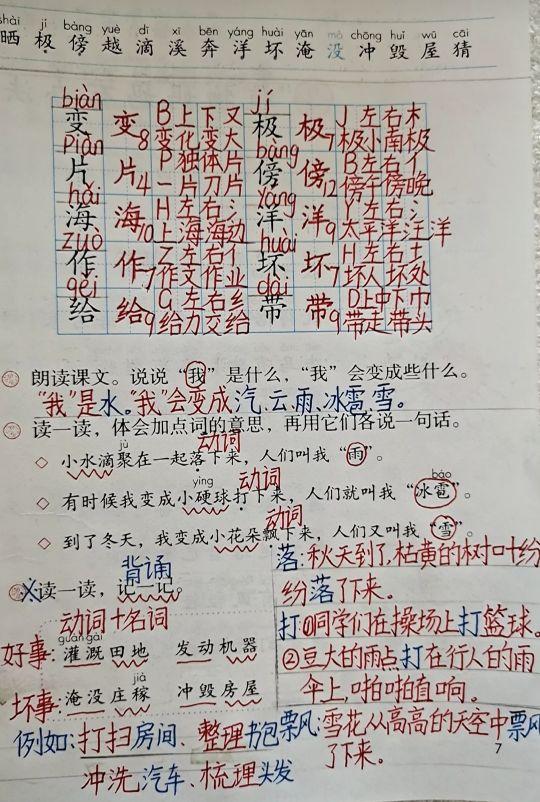 shài jí bàng yuè dī xī bēn yáng huài yān mò chōng huǐ wū cāi
晒 极 傍 越 滴 溪 奔 洋 坏 淹 没 冲 毁 屋 猜
biàn jí
变 变8 B上下又 极 极7 J左右木
变化变大 极小南极
piàn bàng
片 片4 P独体片 傍 傍12 B左右亻
一片刀片 傍午傍晚
hǎi yáng
海 海10 H左右氵 洋 洋9 Y左右氵
上海海边 太平洋汪洋
zuò huài
作 作7 Z左右亻 坏 坏7 H左右土
作文作业 坏人坏处
gěi dài
给 给9 G左右纟 带 带9 D上中下巾
给力交给 带走带头
朗读课文。说说“我”是什么，“我”会变成些什么。
“我”是水。“我”会变成汽、云、雨、冰雹、雪。
读一读，体会加点词的意思，再用它们各说一句话。
动词
jù
◇ 小水滴聚在一起落下来，人们叫我“雨”。
动词
yìng báo
◇ 有时候我变成小硬球打下来，人们就叫我“冰雹”。
动词
◇ 到了冬天，我变成小花朵飘下来，人们又叫我“雪”。
背诵
读一读，记一记。
动词+名词
guàn gài
好事：灌溉田地 发动机器
jià
坏事：淹没庄稼 冲毁房屋
例如：打扫房间、整理书包
冲洗汽车、梳理头发
落：秋天到了，枯黄的树叶纷
纷落了下来。
打：①同学们在操场上打篮球。
②豆大的雨点打在行人的雨
伞上，啪啪直响。
飘：雪花从高高的天空中飘
了下来。
7